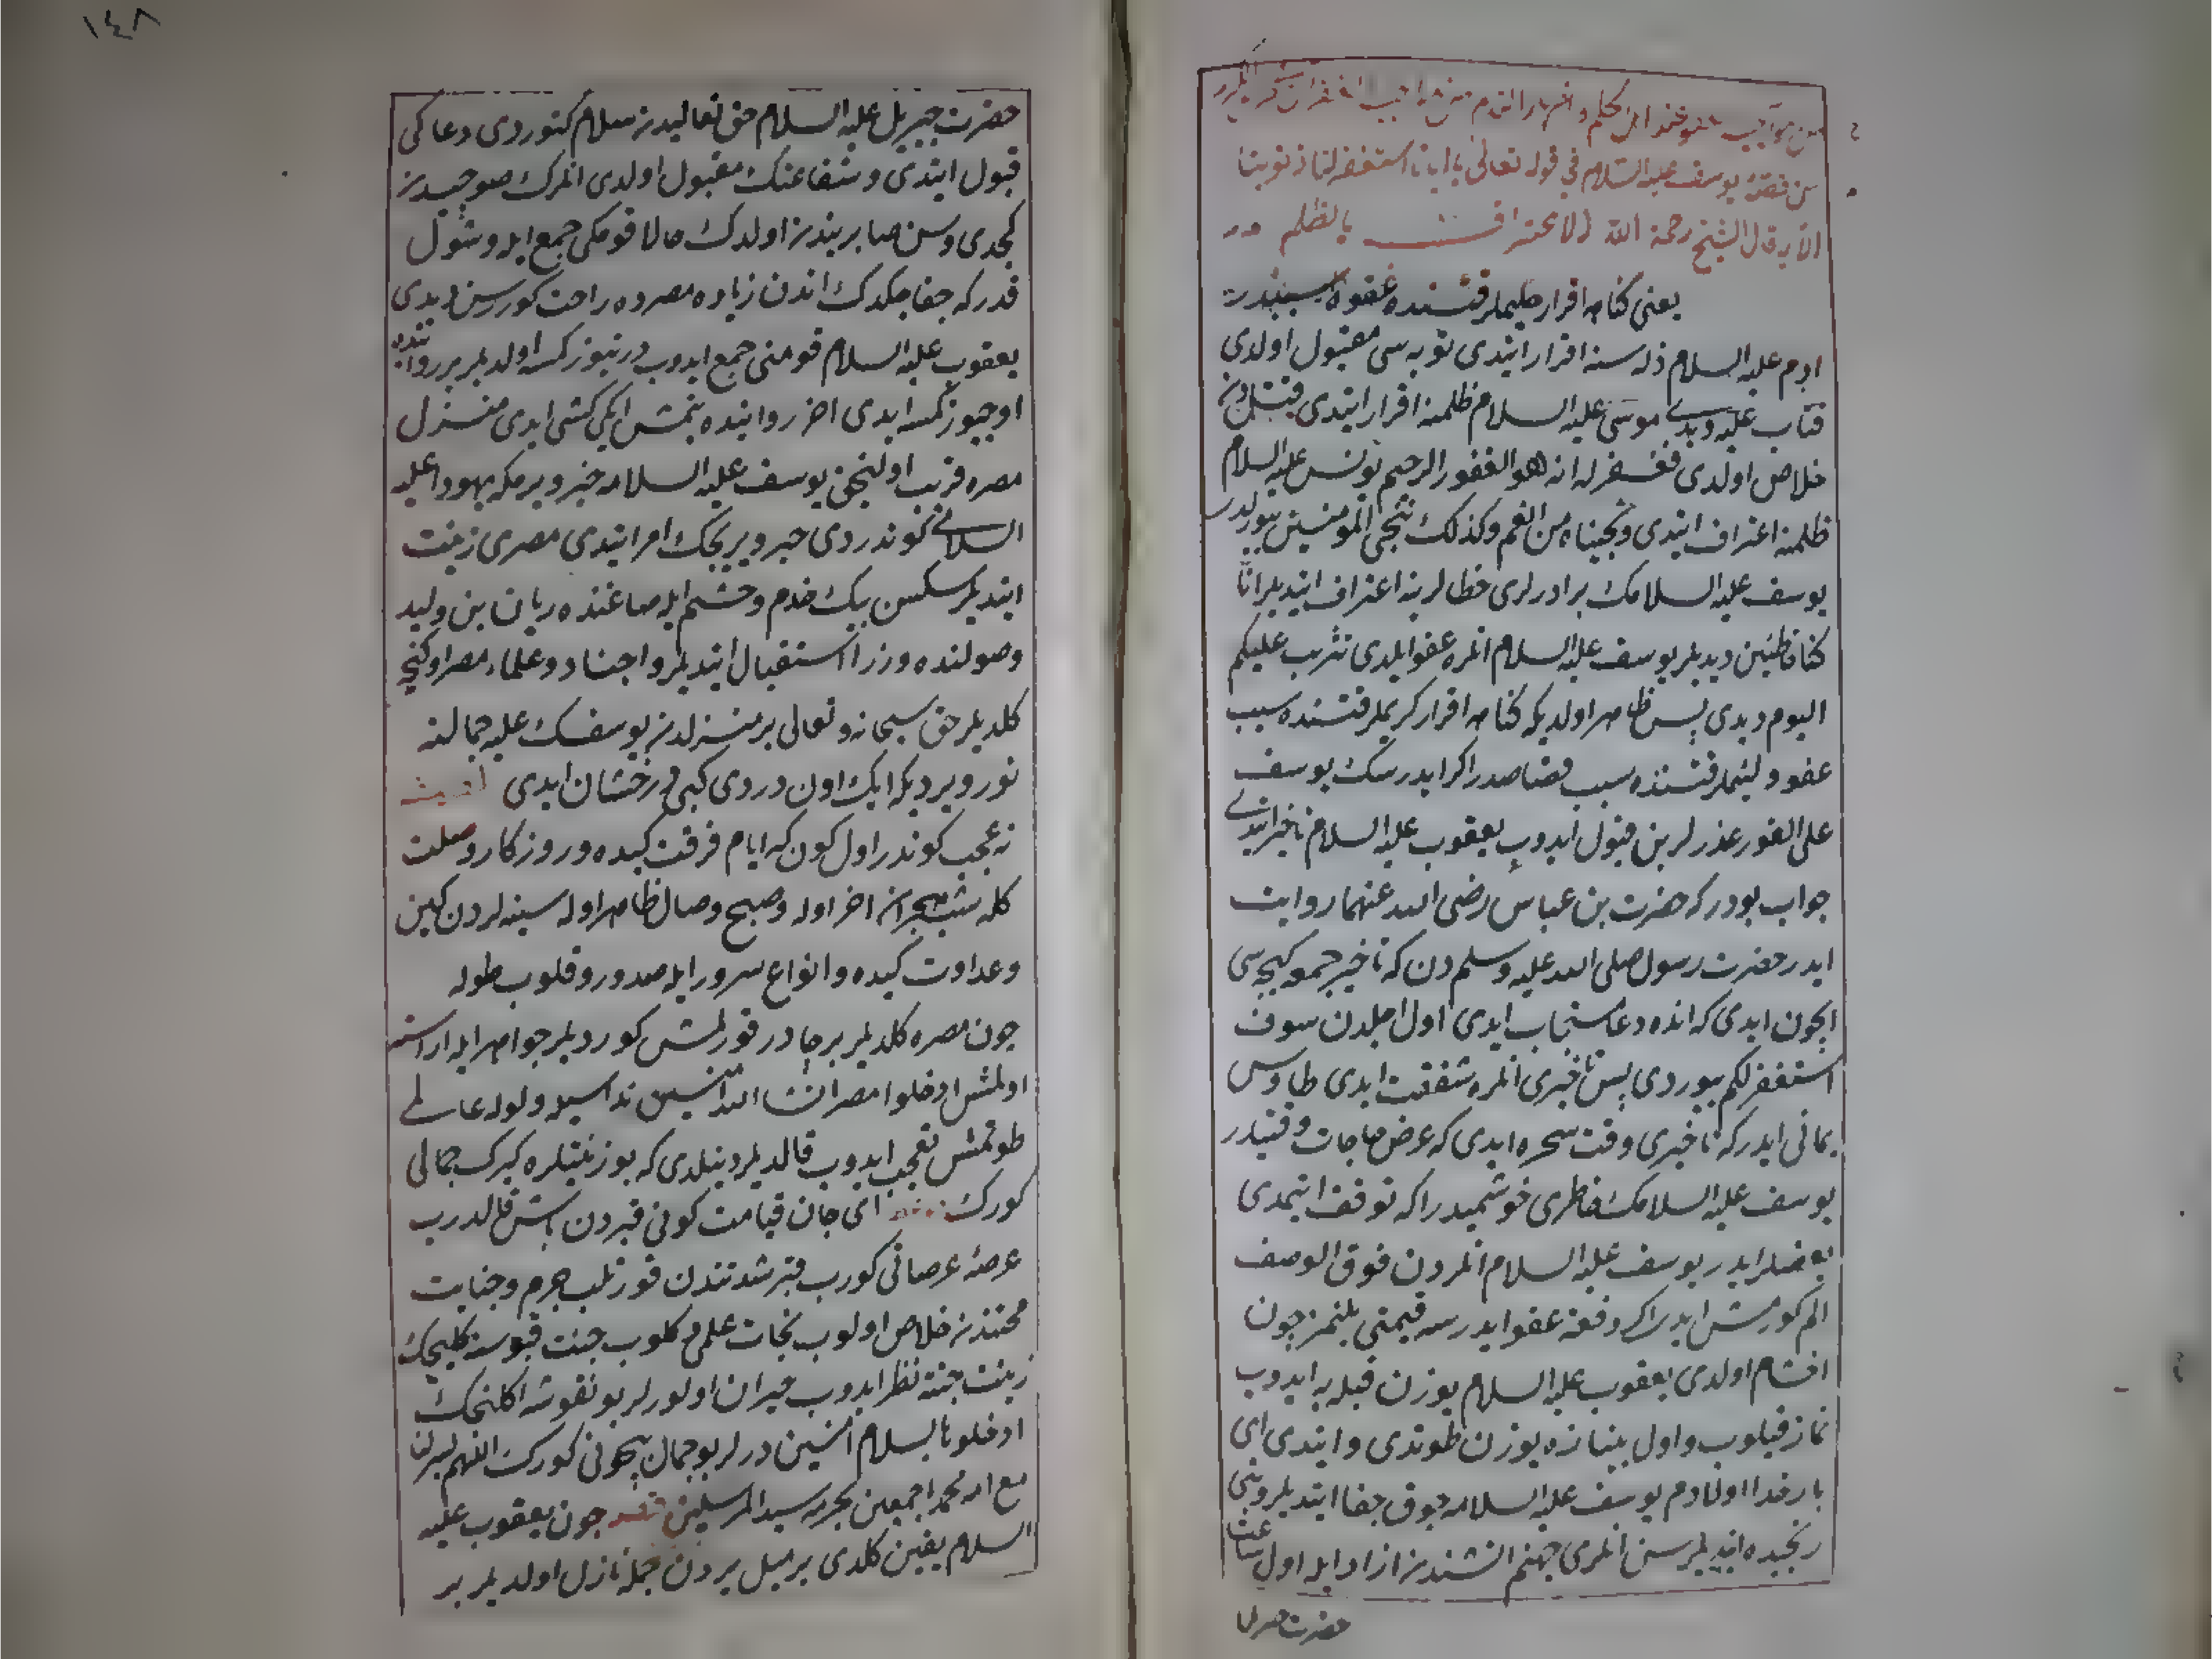 من مواجب عفو عند اهل الحلم و
من قصة يوسف عليه السلام في قوله تعالى يا ابانا استغفر لنا ذنوبنا
الآية قال الشيخ رحمة الله الاعتراف بالظلم
يعنى كناهه اقرار حليملر قتنده عفوه سببدر
ادم عليه السلام ذله سنه اقرار ايتدى توبه سى مقبول اولدى
فتاب عليه ديدى موسى عليه السلام ظلمنه اقرار ايتدى قتلدن
خلاص اولدى فغفر له انه هو الغفور الرحيم يونس عليه السلام
ظلمنه اعتراف ايتدى ونجيناه من الغم وكذلك ننجى المؤمنين بيورلدى
يوسف عليه السلامك برادرلرى خطالرينه اعتراف ايتديلر انا
كنا خاطئين ديديلر يوسف عليه السلام انلره عفو ايلدى تثريب عليكم
اليوم ديدى پس ظاهر اولديكه كناهه اقرار كريملر قتنده سبب
عفو و لئيملر قتنده سبب قصاصدر اكر ايدرسك يوسف
على الفور عذرلرين قبول ايدوب يعقوب عليه السلام تاخير ايتدى
جواب بودركه حضرت بن عباس رضى الله عنهما روايت
ايدر حضرت رسول صلى الله عليه وسلم دن كه تاخير جمعه كيجه سى
ايچون ايدى كه انده دعا مستجاب ايدى اول اجلدن سوف
استغفر لكم بيوردى پس تاخيرى انلره شفقت ايدى طاوس
يمانى ايدركه تاخيرى وقت سحره ايدى كه عرض حاجات وقتيدر
يوسف عليه السلامك خاطرى خوشميدر اكه توقف ايتمدى
بعضلر ايدر يوسف عليه السلام انلردن فوق الوصف
الم كورمش ايدى اكر دفعة عفو ايدرسه قيمتى بلنمز چون
اخشام اولدى يعقوب عليه السلام يوزن قبله يه ايدوب
نماز قيلوب و اول بى نيازه يوزن طوتدى و ايتدى اى
بار خدا اولادم يوسف عليه السلامه چوق جفا ايتديلر وبنى
رنجيده ايتديلر سن انلرى جهنم اتشندن ازاد ايله اول ساعت
حضرت جبريل عليه السلام حق تعاليدن سلام كتوردى دعاكى
قبول ايتدى و شفاعتك مقبول اولدى انلرك صوچندن
كچدى و سن صابريندن اولدك حالا قومكى جمع ايله و شول
قدركه جفا چكدك اندن زياده مصرده راحت كورسن ديدى
يعقوب عليه السلام قومنى جمع ايدوب درتيوز كمسه اولديلر بر روايتده
اوچيوز كمسه ايدى اخر روايتده يتمش ايكى كشى ايدى منزل
مصره قريب اولنجق يوسف عليه السلامه خبر ويرمكه يهودا عليه
السلامى كوندردى خبر ويريجك امر ايتدى مصرى زينت
ايتديلر سكسن بيك خدم وحشم ايله صاغنده ريان بن وليد
وصولنده وزرا استقبال ايتديلر و اجناد و علماء مصر اوكنجه
كلديلر حق سبحانه و تعالى بر منزلدن يوسفك عليه جمالنه
نور ويرديكه ايك اون دردى كبى درخشان ايدى
نه عجب كوندر اول كون كه ايام فرقت كيده و روزكار وصلت
كله شب هجران اخر اوله و صبح وصال ظاهر اوله سينه لردن كين
وعداوت كيده و انواع سرور ايله صدور و قلوب طوله
چون مصره كلديلر بر چادر قورلمش كورديلر جواهر ايله اراسته
اولمش ادخلوا مصر ان شاء الله امنين نداسيله ولوله عالمى
طوتمش تعجب ايدوب قالديلر دينلدى كه بو زينتلره كرك جمالى
كورك اى جان قيامت كونى قبردن باش قالدرب
عرصه عرصاتى كورب قبر شدتندن قورتلب جرم و جنايت
محنتندن خلاص اولوب نجات علمى كلوب جنت قپوسنه كليجك
زينت جنته نظر ايدوب حيران اولورلر بو نقوشه اكلنجك
ادخلوها بسلام امنين ديرلر بو جمال بيچونى كورك اللهم يسرلنا
مع امة محمد اجمعين بحرمة سيد المرسلين چون يعقوب عليه
السلام يقين كلدى بر ميل يردن جمله نازل اولديلر بر
١٤٨